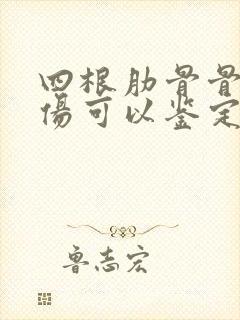 四根肋骨骨
伤可以鉴定
鲁志宏